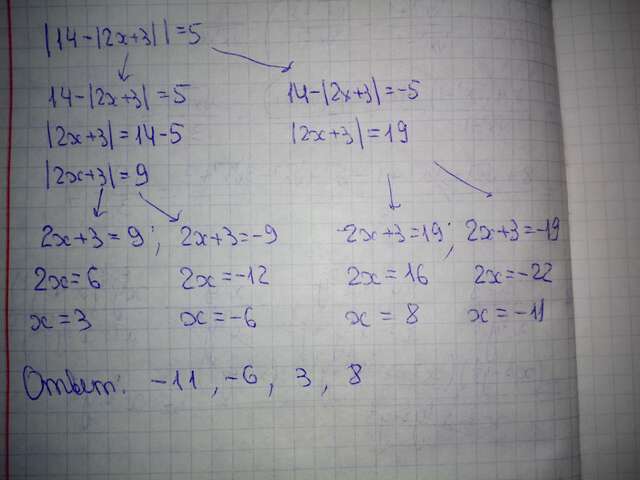 |14-|2x+3||=5
14-|2x+3|=5 14-|2x+3|=-5
|2x+3|=14-5 |2x+3|=19
|2x+3|=9
2x+3=9; 2x+3=-9 2x+3=19; 2x+3=-19
2x=6 2x=-12 2x=16 2x=-22
x=3 x=-6 x=8 x=-11
Ответ: -11, -6, 3, 8